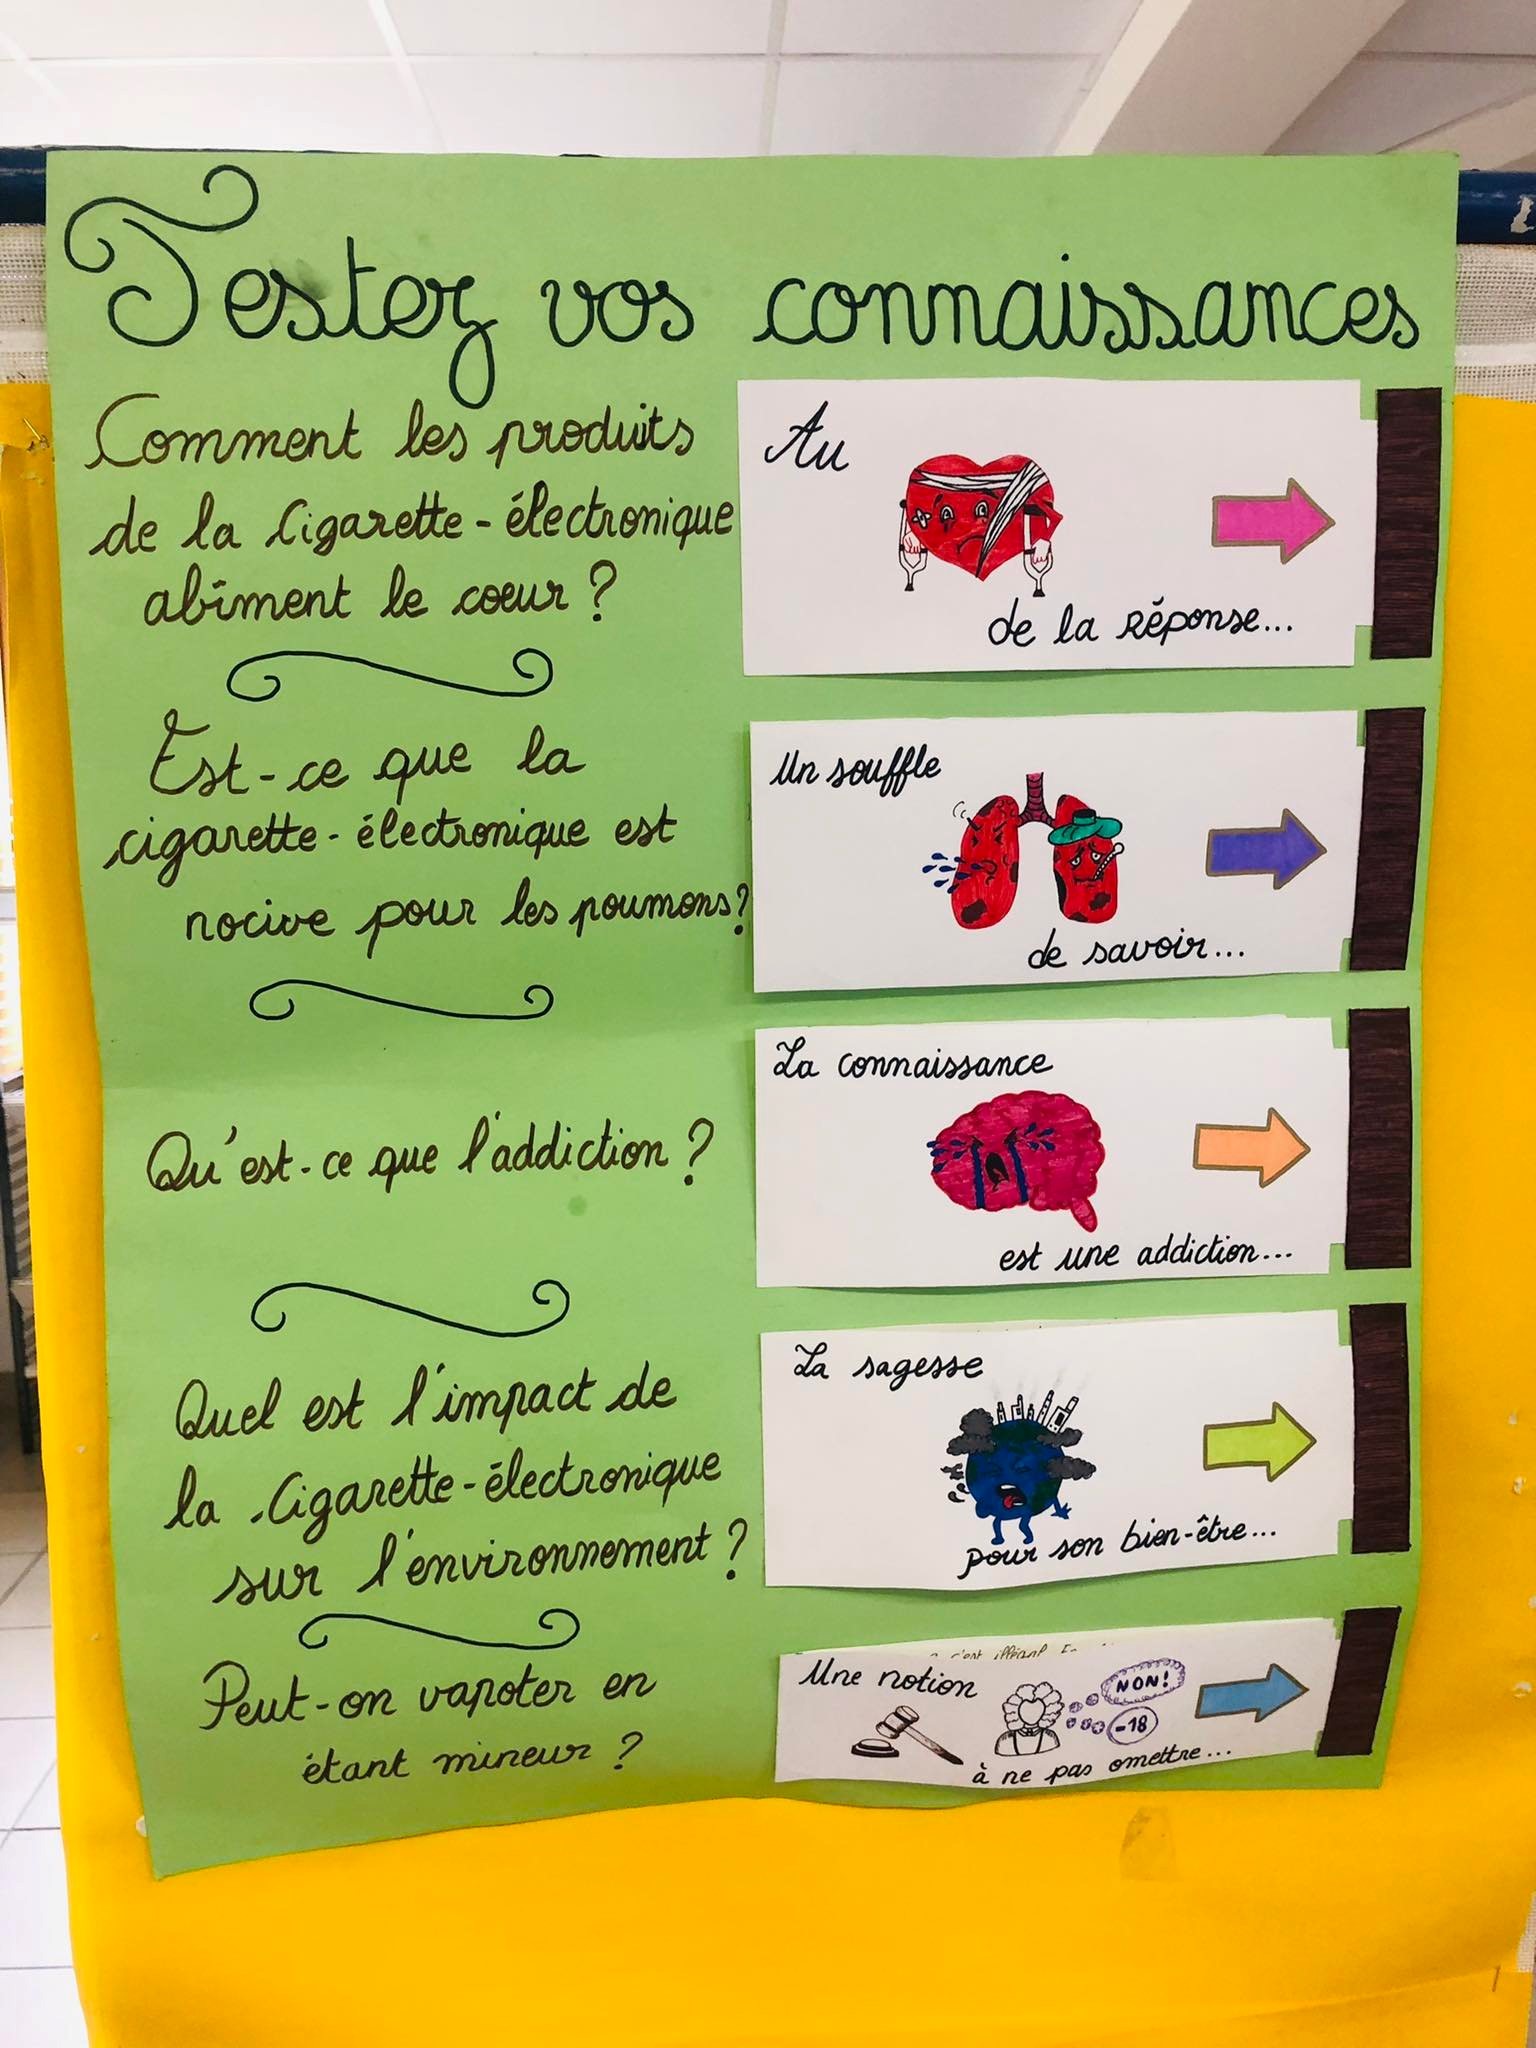 Testez vos connaissances
Comment les produits
de la cigarette-électronique
abîment le coeur ?
Au
de la réponse...
Est-ce que la
cigarette-électronique est
nocive pour les poumons ?
Un souffle
de savoir...
Qu'est-ce que l'addiction ?
La connaissance
est une addiction...
Quel est l'impact de
la cigarette-électronique
sur l'environnement ?
La sagesse
pour son bien-être...
Peut-on vapoter en
étant mineur ?
Une notion
NON!
-18
à ne pas omettre...